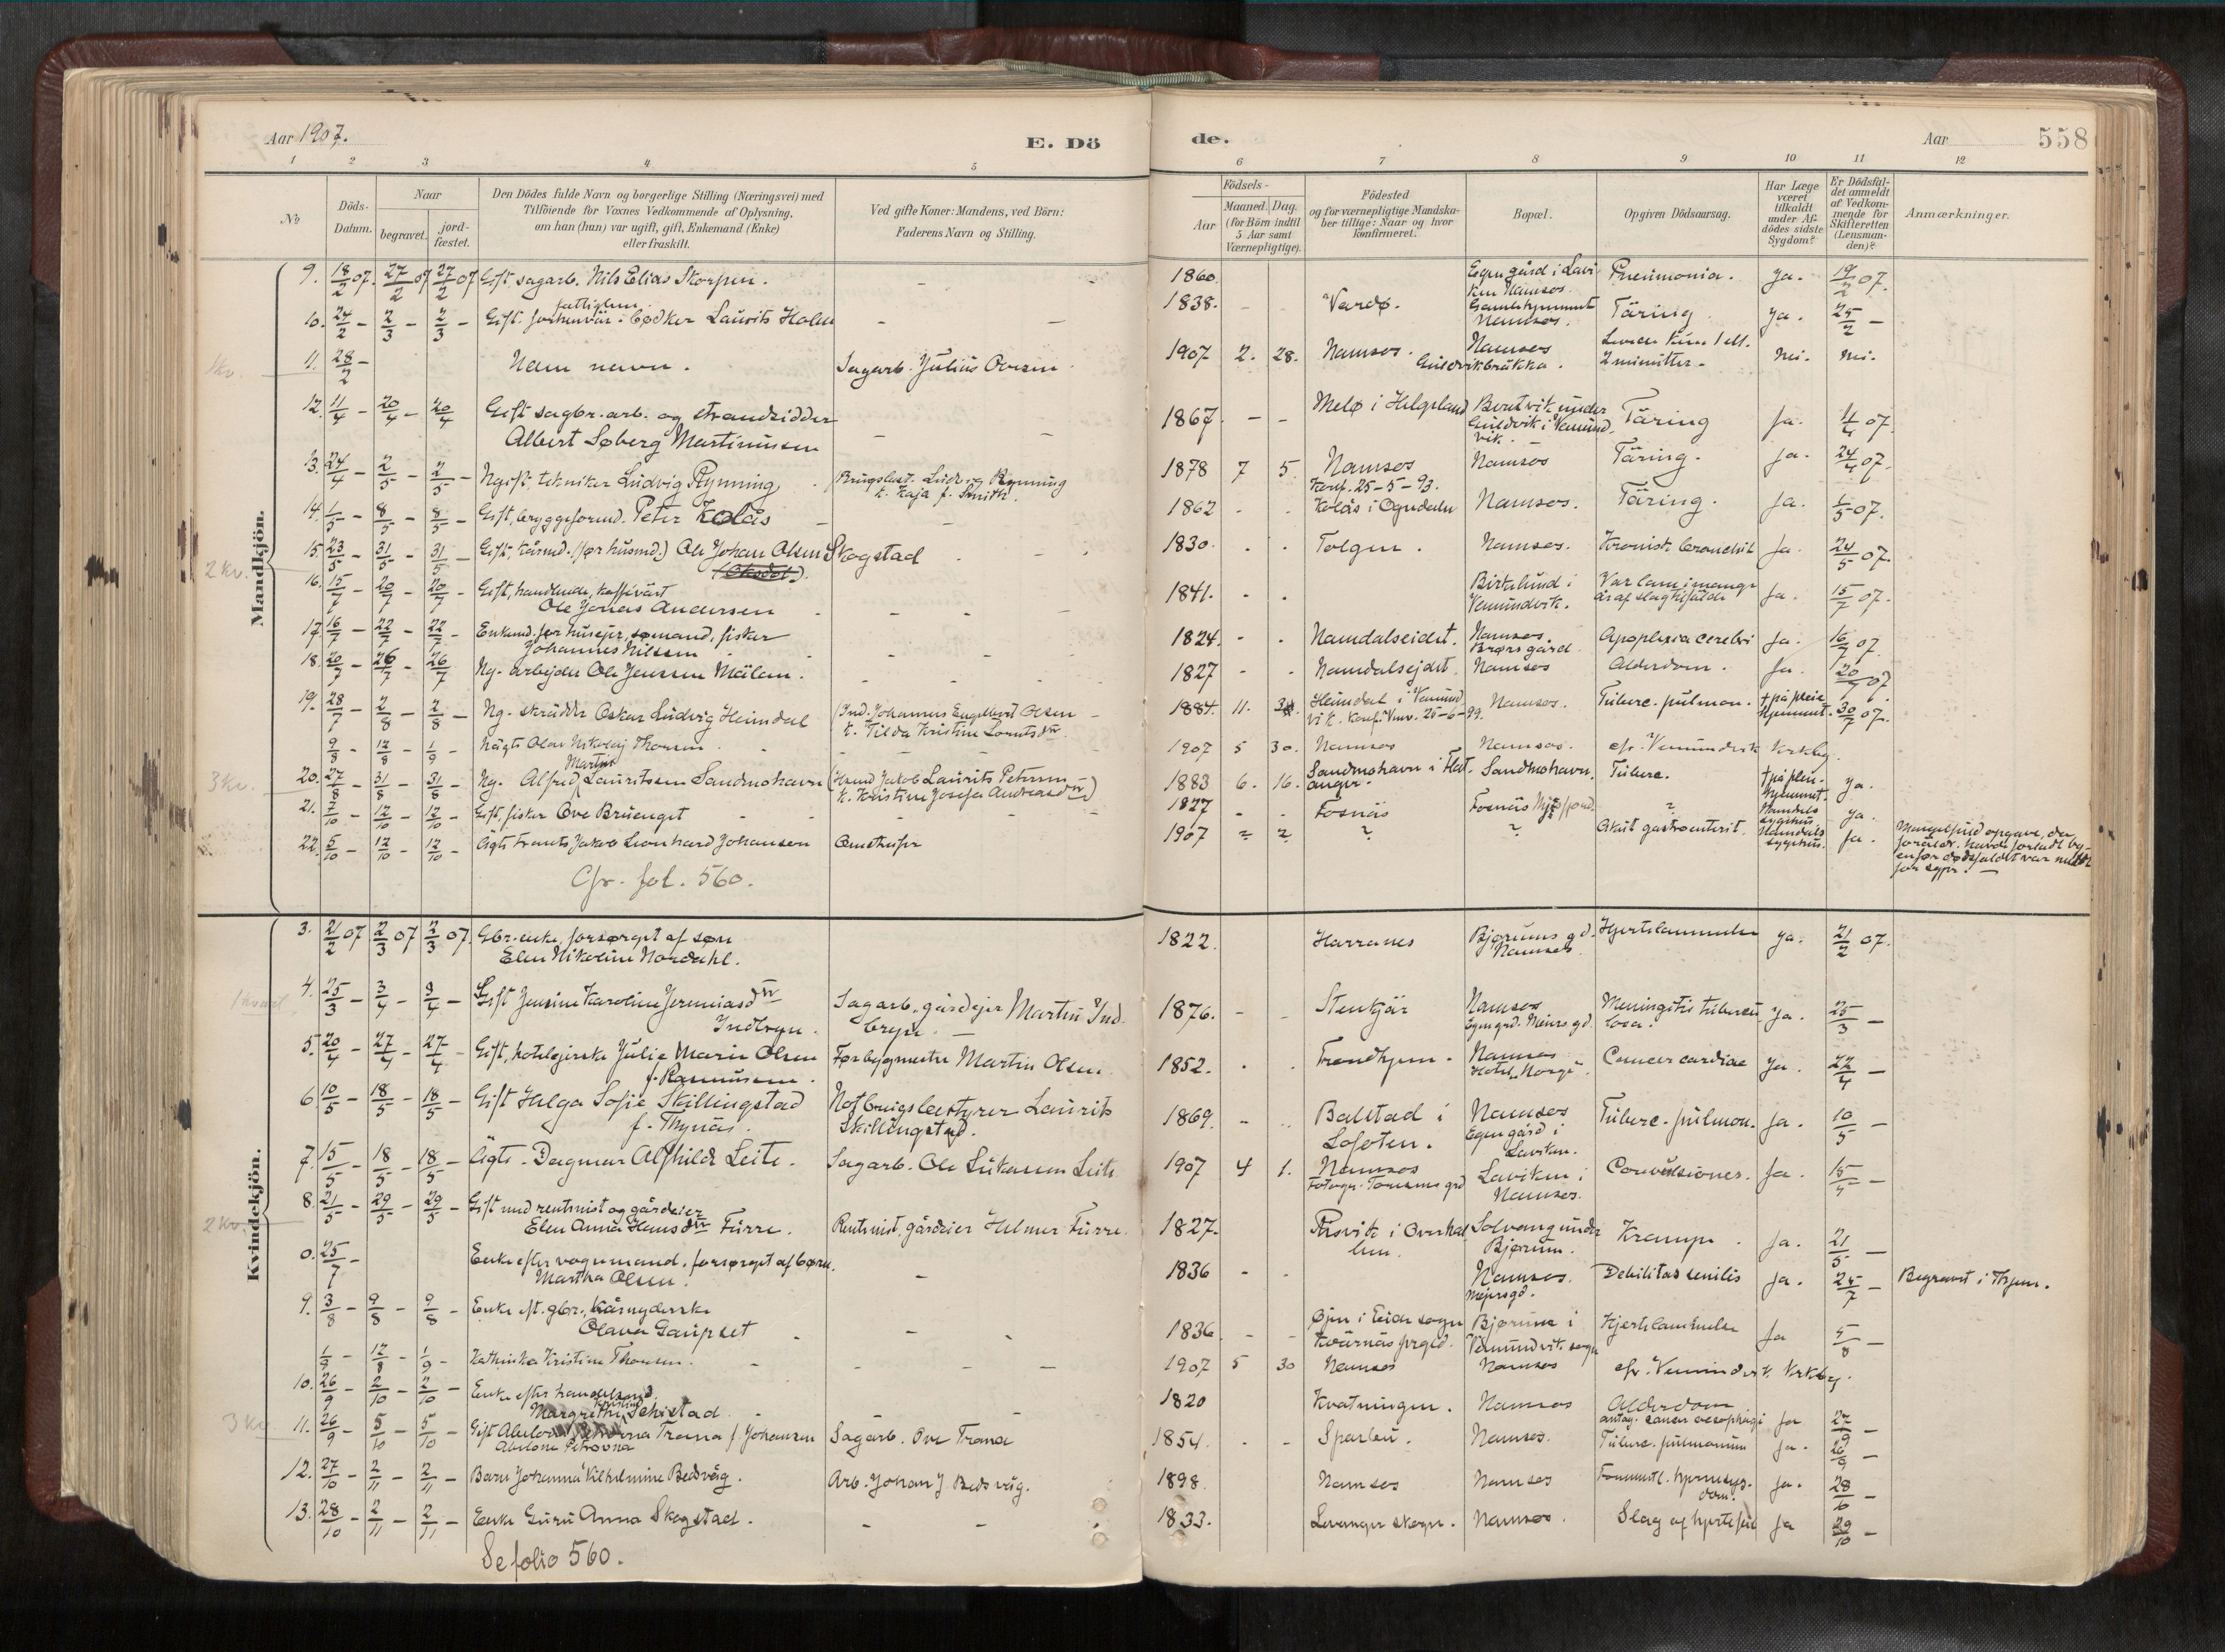 Aar 1907.
E. Dö
de.
Aar
558
1 2 3 4 5
6 7 8 9 10 11 12
No
Döds-Datum.
Naar
begravet.
jord-fæstet.
Den Dödes fulde Navn og borgerlige Stilling (Næringsvei) med
Tilföiende for Voxnes Vedkommende af Oplysning,
om han (hun) var ugift, gift, Enkemand (Enke)
eller fraskilt.
Ved gifte Koner: Mandens, ved Börn:
Faderens Navn og Stilling.
Födsels-
Aar
Maaned. Dag.
(for Börn indtil
5 Aar samt
Værnepligtige).
Födested
og for værnepligtige Mandska-
ber tillige: Naar og hvor
konfirmeret.
Bopæl.
Opgiven Dödsaarsag.
Har Læge
været
tilkaldt
under Af-
dödes sidste
Sygdom?
Er Dödsfal-
det anmeldt
af Vedkom-
mende for
Skifteretten
(Lensman-
den)?
Anmærkninger.
Mandkjön.
9. 18/2 07. 27/2 07 27/2 07 Gift sagarb. Nils Elias Skorpen. - - 1860. Egen gård i Lavi-
ken Namsos. Pneumonia. Ja. 19/2 07.
10. 24/2 - 2/3 - 2/3 - Gift. bødker Laurits Holm - - 1838. - Vardø. Gamlehjemmet
Namsos. Täring. Ja. 25/2 -
1 kv.
11. 28/2 - Uden navn. Sagarb. Julius Ovesen 1907 2. 28. Namsos. Namsos
Guldvikbrakka. 2 minutter. - Nei. Nei.
12. 11/4 - 20/4 - 20/4 Gift sagbr. arb. og strandsidder
Albert Søberg Martinussen - - 1867. - - Melø i Helgeland Beretvik under
Guldvik i Vemund-
vik. - Täring Ja. 07.
13. 24/4 - 2/5 - 2/5 - Ugift, tekniker Ludvig Rynning. Brugsbest. Ludvig Rynning
k. Kaja f. Smith. 1878 7 5 Namsos
Konf. 25-5-93. Namsos Täring. Ja. 24/4 07.
14. 1/5 - 8/5 - 8/5 - Gift, bryggeformd. Peter Kolås - - 1862 - - Kolås i Ogndalen Namsos. Täring. Ja. 1/5 07.
2 kv.
15. 23/5 - 31/5 - 31/5 - Gift. kårmd. (før husmd.) Ole Johan Olsen Skogstad - - 1830. - - Tolgen. Namsos. Kronisk bronchit Ja. 24/5 07.
16. 15/7 - 20/7 - 20/7 - Gift, handlende, kaffivärt
Ole Jonas Andersen - - - 1841. - - Birkelund i
Vemundvik. Var lam i mange
år af slagtilfälde Ja. 15/7 07.
17. 16/7 - 22/7 - 22/7 - Enkemd. før husejer, sømand, fisker
Johannes Nilssen - - - 1824. - - Namdalseidet. Namsos.
Brørs gård Apoplexia cerebri Ja. 16/7 07.
18. 20/7 - 26/7 - 26/7 Ug. arbejder Ole Jenssen Mälen. - - - 1827 - - Namdalsejdet Namsos Alderdom. Ja. 20/7 07
19. 28/7 - 2/8 - 2/8 - Ug. skrädder Oskar Ludvig Heimdal (Ind. Johannes Engelbert Olsen -
k. Tilda Kristine Lorntsdtr. 1884. 11. Heimdal i Vemund
vik. Konf. Vmv. 25-6-99. Namsos. Tuberc. pulmon. + på pleie
hjemmet. 30/7 07.
9/8 - 12/8 - 1/9 - Uägte Olav Nikolaj Thorsen. - - - 1907 5 30. Namsos Namsos. cfr. Vemundvik Kirkebg.
3 kv.
20. 27/8 - 31/8 - 31/8 - Ug. Alfred Martin Lauritssen Sandmohavn (Husmd Jakob Laurits Petersen
k. Kristine Josefa Andreasdtr) 1883 6. 16. Sandmohavn i Flat-
anger. Sandmohavn. Tuberc. + på pleie-
hjemmet. Ja.
21. 7/10 - 12/10 - 12/10 - Gift, fisker Ove Bruenget - - - 1827 - - Fosnäs Fosnäs ? Namdals
sygehus. Ja.
22. 5/10 - 12/10 - 12/10 - Ägte Frants Jakob Leonhard Johansen 1907 ? ? ? ? Akut gastroenterit. Namdals
sygehus. Ja. Mangelfuld opgave, da
foräldr. havde forladt by-
en før dødsfaldet var meldt
for sygpr. -
Cfr. fol. 560.
Kvindekjön.
3. 21/2 07 2/3 07 2/3 07. Gbr. enke, forsørget af søn
Elen Nikoline Nordahl. 1822. Harranes Bjørums gd.
Namsos. Hjertelammelse Ja. 21/2 07.
4. 25/3 - 3/4 - 3/4 - Gift Jensine Karoline Jeremiasdtr
Indbryn. Sagarb., gårdejer Martin Ind-
bryn. - 1876. - - Stenkjär Namsos
Egen grd. Meiers gd. Meningitis tubercu-
losa. Ja. 25/3 -
5. 20/4 - 27/4 - 27/4 - Gift, hotelejerske Julie Marie Olsen
f. Rasmussen. Før bygmester Martin Olsen. 1852. - - Trondhjem. Namsos
Hotel „Norge". Cancer cardiae Ja. 22/4 -
6. 10/5 - 18/5 - 18/5 - Gift Helga Sofie Skillingstad
f. Thynäs. Notbrugsbestyrer Laurits
Skillingstad. 1869. - - Balstad i
Lofoten. Namsos
Egen gård i
Laviken. Tuberc. pulmon. Ja. 10/5 -
7. 15/5 - 18/5 - 18/5 - Ägte. Dagmar Alfhild Leite. Sagarb. Ole Lukassen Leite 1907 4 1. Namsos Laviken i
Namsos. Convulsiones. Ja. 15/5 -
2 kv.
8. 21/5 - 29/5 - 29/5 - Gift med rentenist og gårdeier
Elen Anna Hansdtr Furre. Rentenist, gårdeier Helmer Furre. 1827. Risvik i Overhal-
len. Solvang under
Bjørum. Krampe. Ja. 21/5 -
0. 25/7 - Enke efter vognmand, forsørget af børn.
Martha Olsen. - 1836 - - Namsos.
Meiersgd. Debilitas senilis Ja. 25/7 - Begravet i Thjem.
9. 3/8 - 9/8 - 9/8 - Enke eft. gbr., kårnyderske
Olava Gaupset - - - 1836. - - Øjen i Eide sogn
Kvärnäs prgjd. Bjørum i
Vemundvik sogn Hjertelammelse Ja 5/8 -
1/9 - 12/8 - 1/9 - Kathinka Kristine Thorsen. - - - 1907 5 30 Namsos Namsos cfr. Vemundvik Kirkebg.
10. 26/9 - 2/10 - 2/10 - Enke efter handelsmd.
Margrethe Kristine Sehistad - 1820 Kvatningen. Namsos Alderdom
antag. cancer oesophagi Ja 27/9 -
3 kv.
11. 26/9 - 5/10 - 5/10 - Gift Trana f. Johansen
Abelone Petrovna Sagarb. Ove Trana 1854. - - Sparbu. Namsos. Tuberc. pulmonum Ja. 26/9 -
12. 27/10 - 2/11 - 2/11 - Barn Johanna Vilhelmine Bedsvåg. Arb. Johan J Bedsvåg. 1898. Namsos Namsos hjernesyg-
dom. Ja. 28/10 -
13. 28/10 - 2/11 - 2/11 - Enke Guru Anna Skogstad. - - - 1833. Levanger skogn. Namsos. Slag af hjertefeil Ja 29/10 -
Se folio 560.